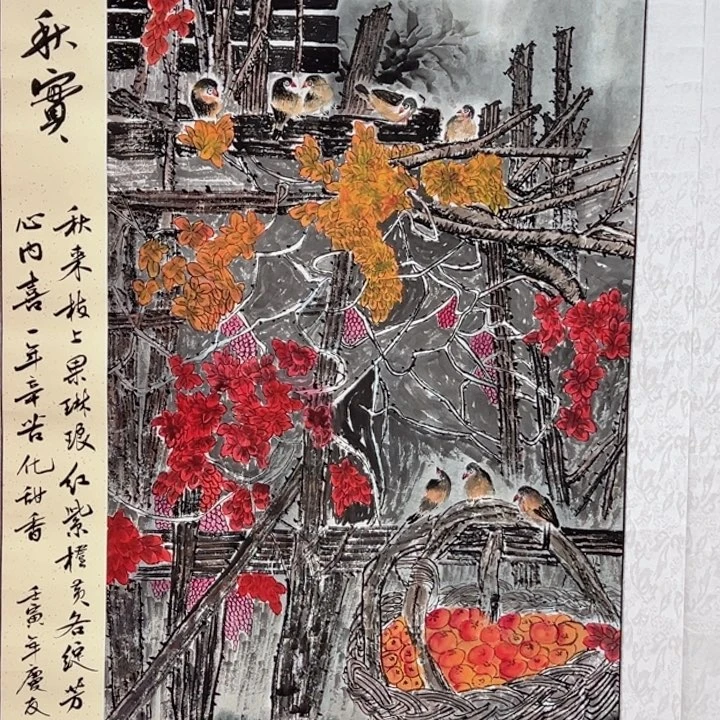 秋實
秋来枝上果琳琅红紫橙黄各绽芳
心内喜一年辛苦化甜香
壬寅年慶友